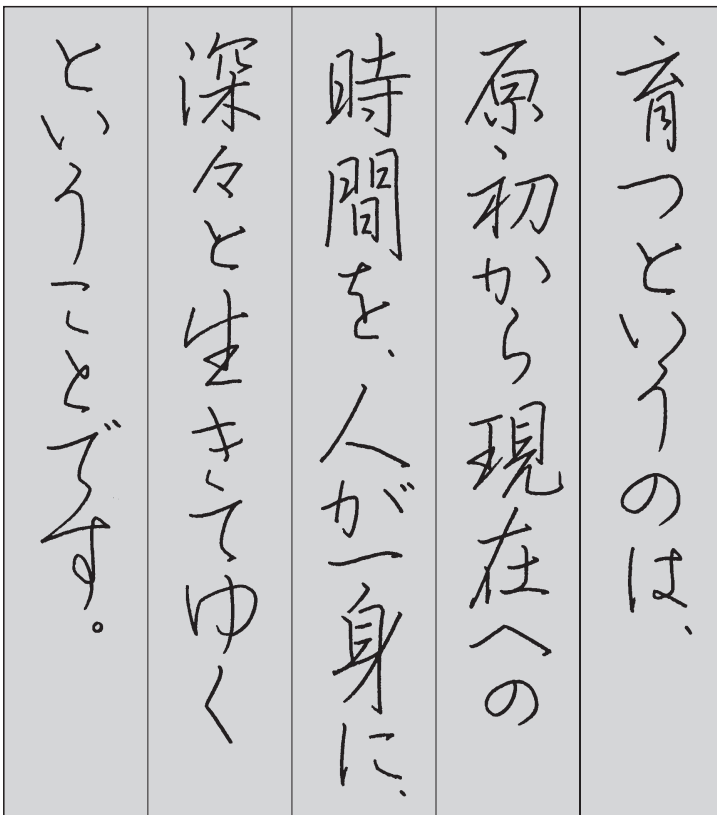 育つというのは、
原初から現在への
時間を、人が一身に、
深々と生きてゆく
ということです。